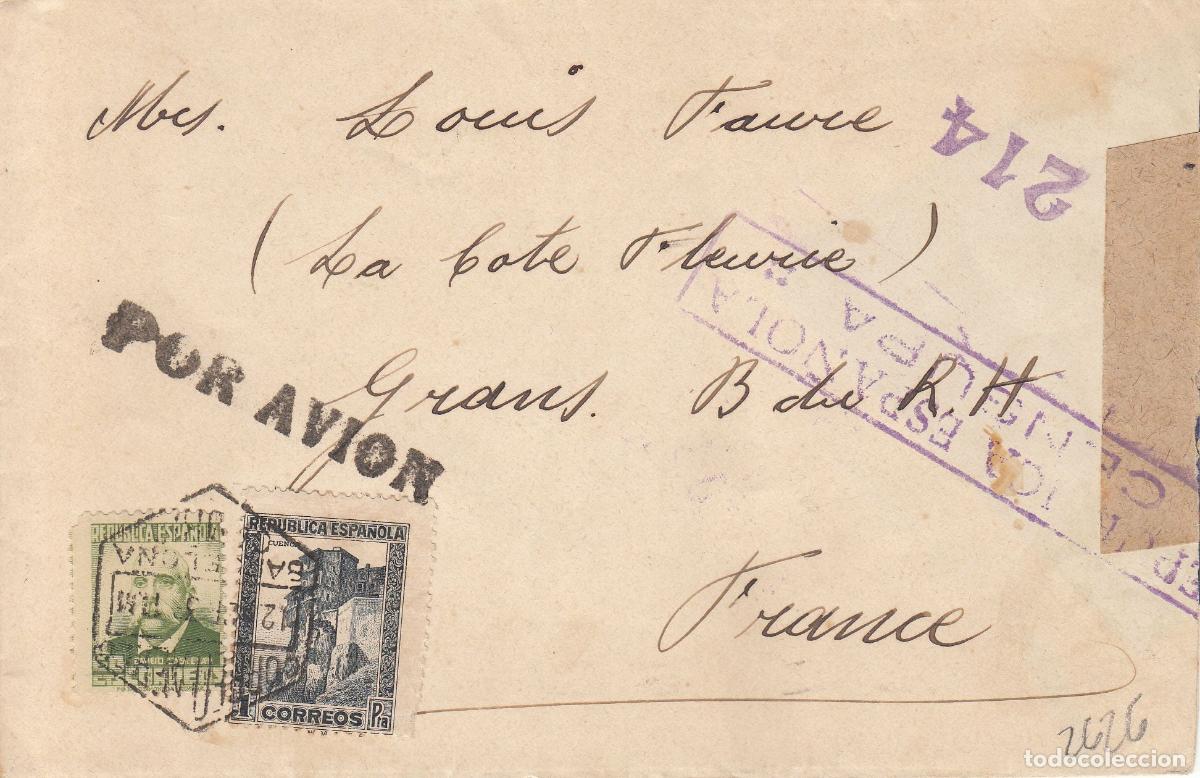 Mrs. Louis Faure
214
(La Cote Fleurie)
POR AVION
Grans. B du R H
ICA ESPAÑOLA
CENSURA
France
REPUBLICA ESPAÑOLA
REPUBLICA ESPAÑOLA
CUENCA
EMILIO CASTELAR
CORREOS
1 CORREOS Pta
2626
todocoleccion